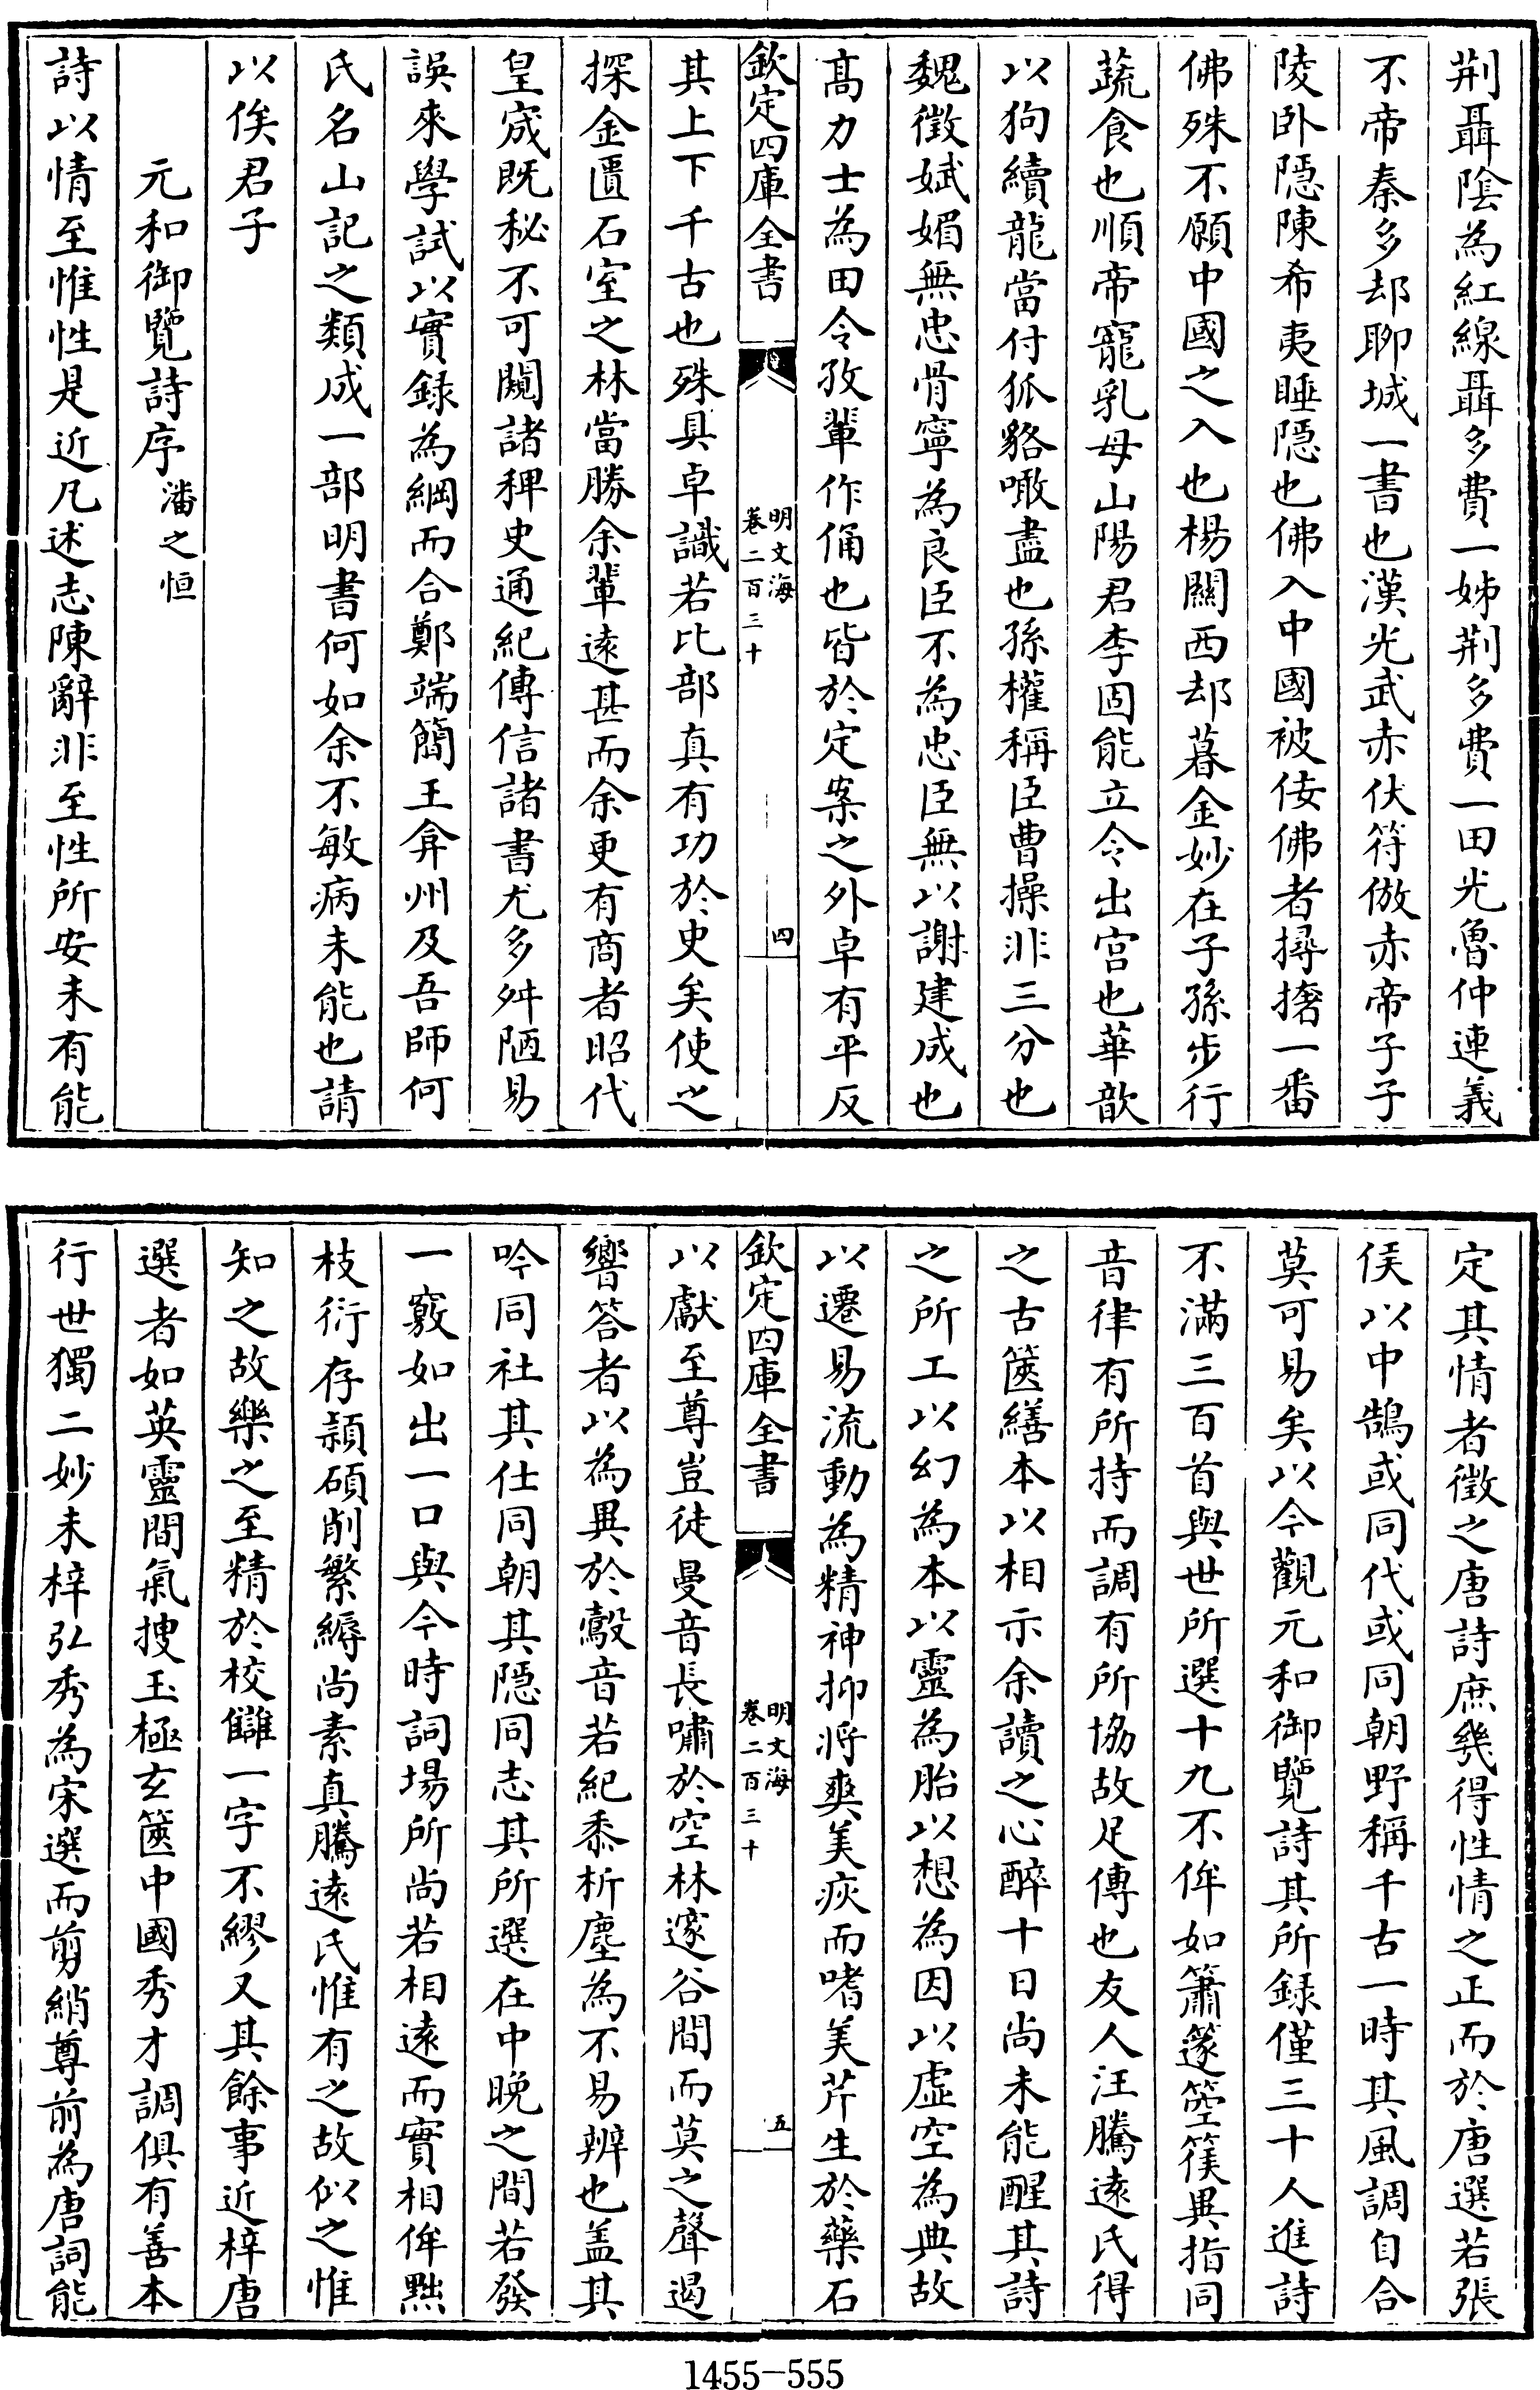 荆聶隂為紅線聶多費一姊荆多費一田光魯仲連義
不帝秦多却聊城一書也漢光武赤伏符倣赤帝子子
陵卧隠陳希夷睡隠也佛入中國被佞佛者撏撦一番
佛殊不願中國之入也楊關西却暮金妙在子孫步行
蔬食也順帝寵乳母山陽君李固能立令出宫也華歆
以狗續龍當付狐貉噉盡也孫權稱臣曹操非三分也
魏徵娬媚無忠骨寧為良臣不為忠臣無以謝建成也
髙力士為田令孜輩作俑也皆於定案之外卓有平反
欽定四庫全書
明文海
卷二百三十
四
其上下千古也殊具卓識若比部真有功於史矣使之
探金匱石室之林當勝余輩逺甚而余更有商者昭代
皇宬既秘不可闚諸稗史通紀傳信諸書尤多舛陋易
誤來學試以實錄為綱而合鄭端簡王弇州及吾師何
氏名山記之類成一部明書何如余不敏病未能也請
以俟君子
元和御覽詩序潘之恒
詩以情至惟性是近凡述志陳辭非至性所安未有能
定其情者徵之唐詩庶幾得性情之正而於唐選若張
侯以中鵠或同代或同朝野稱千古一時其風調自合
莫可易矣以今觀元和御覽詩其所録僅三十人進詩
不滿三百首與世所選十九不侔如簫篴箜篌異指同
音律有所持而調有所協故足傳也友人汪騰逺氏得
之古篋繕本以相示余讀之心醉十日尚未能醒其詩
之所工以幻為本以靈為胎以想為因以虚空為典故
以遷易流動為精神抑將爽美疢而嗜美芹生於藥石
欽定四庫全書
明文海
卷二百三十
五
以獻至尊豈徒曼音長嘯於空林邃谷間而莫之聲遏
響答者以為異於鷇音若紀黍析塵為不易辨也盖其
吟同社其仕同朝其隠同志其所選在中晚之間若發
一竅如出一口與今時詞場所尚若相逺而實相侔㸃
枝衍存頴碩削繁縟尚素真騰逺氏惟有之故似之惟
知之故樂之至精於校讎一字不繆又其餘事近梓唐
選者如英靈間氣搜玉極玄篋中國秀才調俱有善本
行世獨二妙未梓弘秀為宋選而剪綃尊前為唐詞能
1455-555